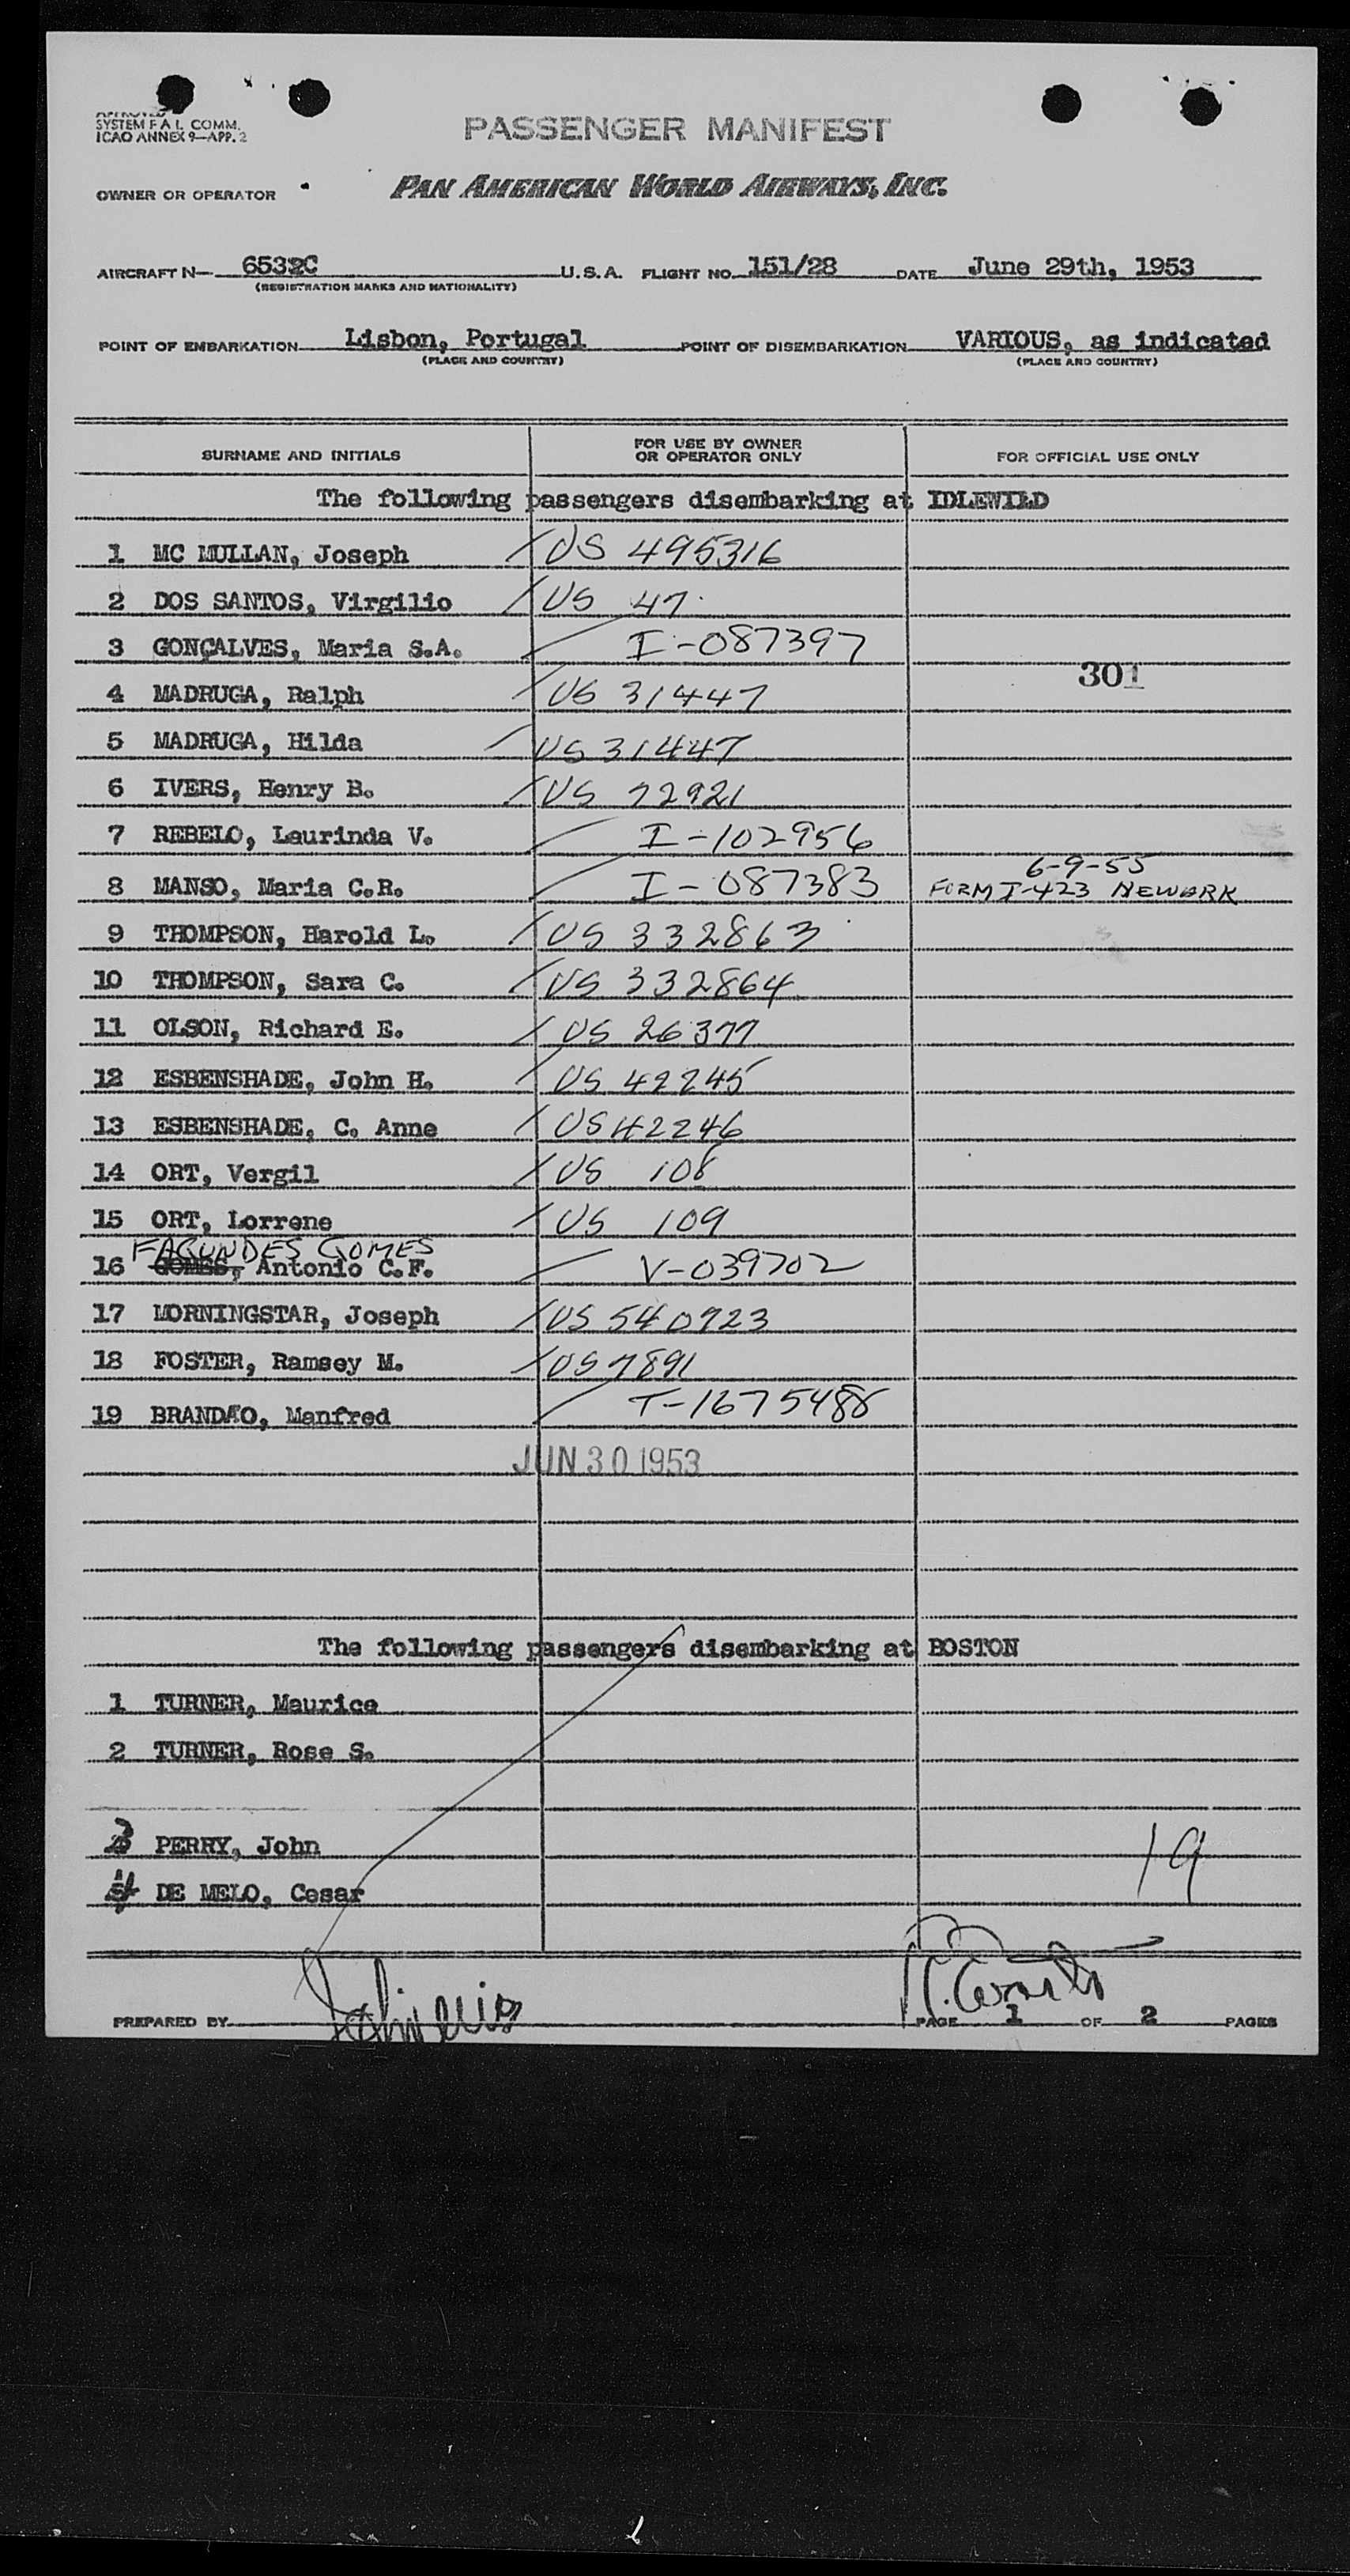 APPROVED
SYSTEM F A L COMM.
ICAO ANNEX 9—APP. 2
PASSENGER MANIFEST
OWNER OR OPERATOR PAN AMERICAN WORLD AIRWAYS, INC.
AIRCRAFT N— 6532C U.S.A. FLIGHT NO. 151/28 DATE June 29th, 1953
(REGISTRATION MARKS AND NATIONALITY)
POINT OF EMBARKATION Lisbon, Portugal POINT OF DISEMBARKATION VARIOUS, as indicated
(PLACE AND COUNTRY) (PLACE AND COUNTRY)
SURNAME AND INITIALS FOR USE BY OWNER OR OPERATOR ONLY FOR OFFICIAL USE ONLY
The following passengers disembarking at IDLEWILD
1 MC MULLAN, Joseph US 495316
2 DOS SANTOS, Virgilio US 47
3 GONÇALVES, Maria S.A. I-087397
301
4 MADRUGA, Ralph US 31447
5 MADRUGA, Hilda US 31447
6 IVERS, Henry B. US 72921
7 REBELO, Laurinda V. I-102956
8 MANSO, Maria C.R. I-087383 6-9-55 FORM I-423 NEWARK
9 THOMPSON, Harold L. US 332863
10 THOMPSON, Sara C. US 332864
11 OLSON, Richard E. US 26377
12 ESBENSHADE, John H. US 42245
13 ESBENSHADE, C. Anne US 42246
14 ORT, Vergil US 108
15 ORT, Lorrene US 109
FAGUNDES GOMES
16 GOMES, Antonio C.F. V-039702
17 MORNINGSTAR, Joseph US 540923
18 FOSTER, Ramsey M. US 7891
19 BRANDÃO, Manfred T-1675488
JUN 30 1953
The following passengers disembarking at BOSTON
1 TURNER, Maurice
2 TURNER, Rose S.
3 PERRY, John
19
4 DE MELO, Cesar
PREPARED BY PAGE 1 OF 2 PAGES